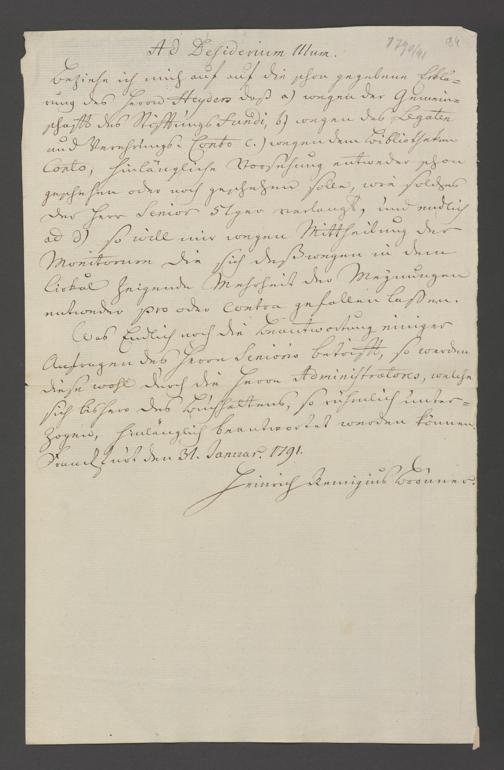 1790/91 84
Ad Desiderium IIIum.
beziehe ich mich auf auf die schon gegebene Erklä-
rung des Herrn Heyders daß a) wegen der Gemein-
schafft des Stifftungs Fundi, b) wegen des Legaten
und Verehrungs- Conto c.) wegen dem Bibliotheken
Conto, hinlängliche Vorsehung entweder schon
geschehen oder noch geschehen solle, wie solches
der Herr Senior verlangt, und endlich
ad d) so will mir wegen Mittheilung der
Monitorum die sich deßwegen in dem
Cirkul zeigende Mehrheit der Meynungen
entweder pro oder contra gefallen lassen.
Was Endlich noch die Beantwortung einiger
Anfragen des Herrn Senioris betrifft, so werden
diese wohl durch die Herrn Administratores, welche
sich bishero des Buchhaltens, so rühmlich unter-
zogen, hinlänglich beantwortet werden können
Franckfurt den 31. Januar. 1791.
Heinrich Remigius Brönner.